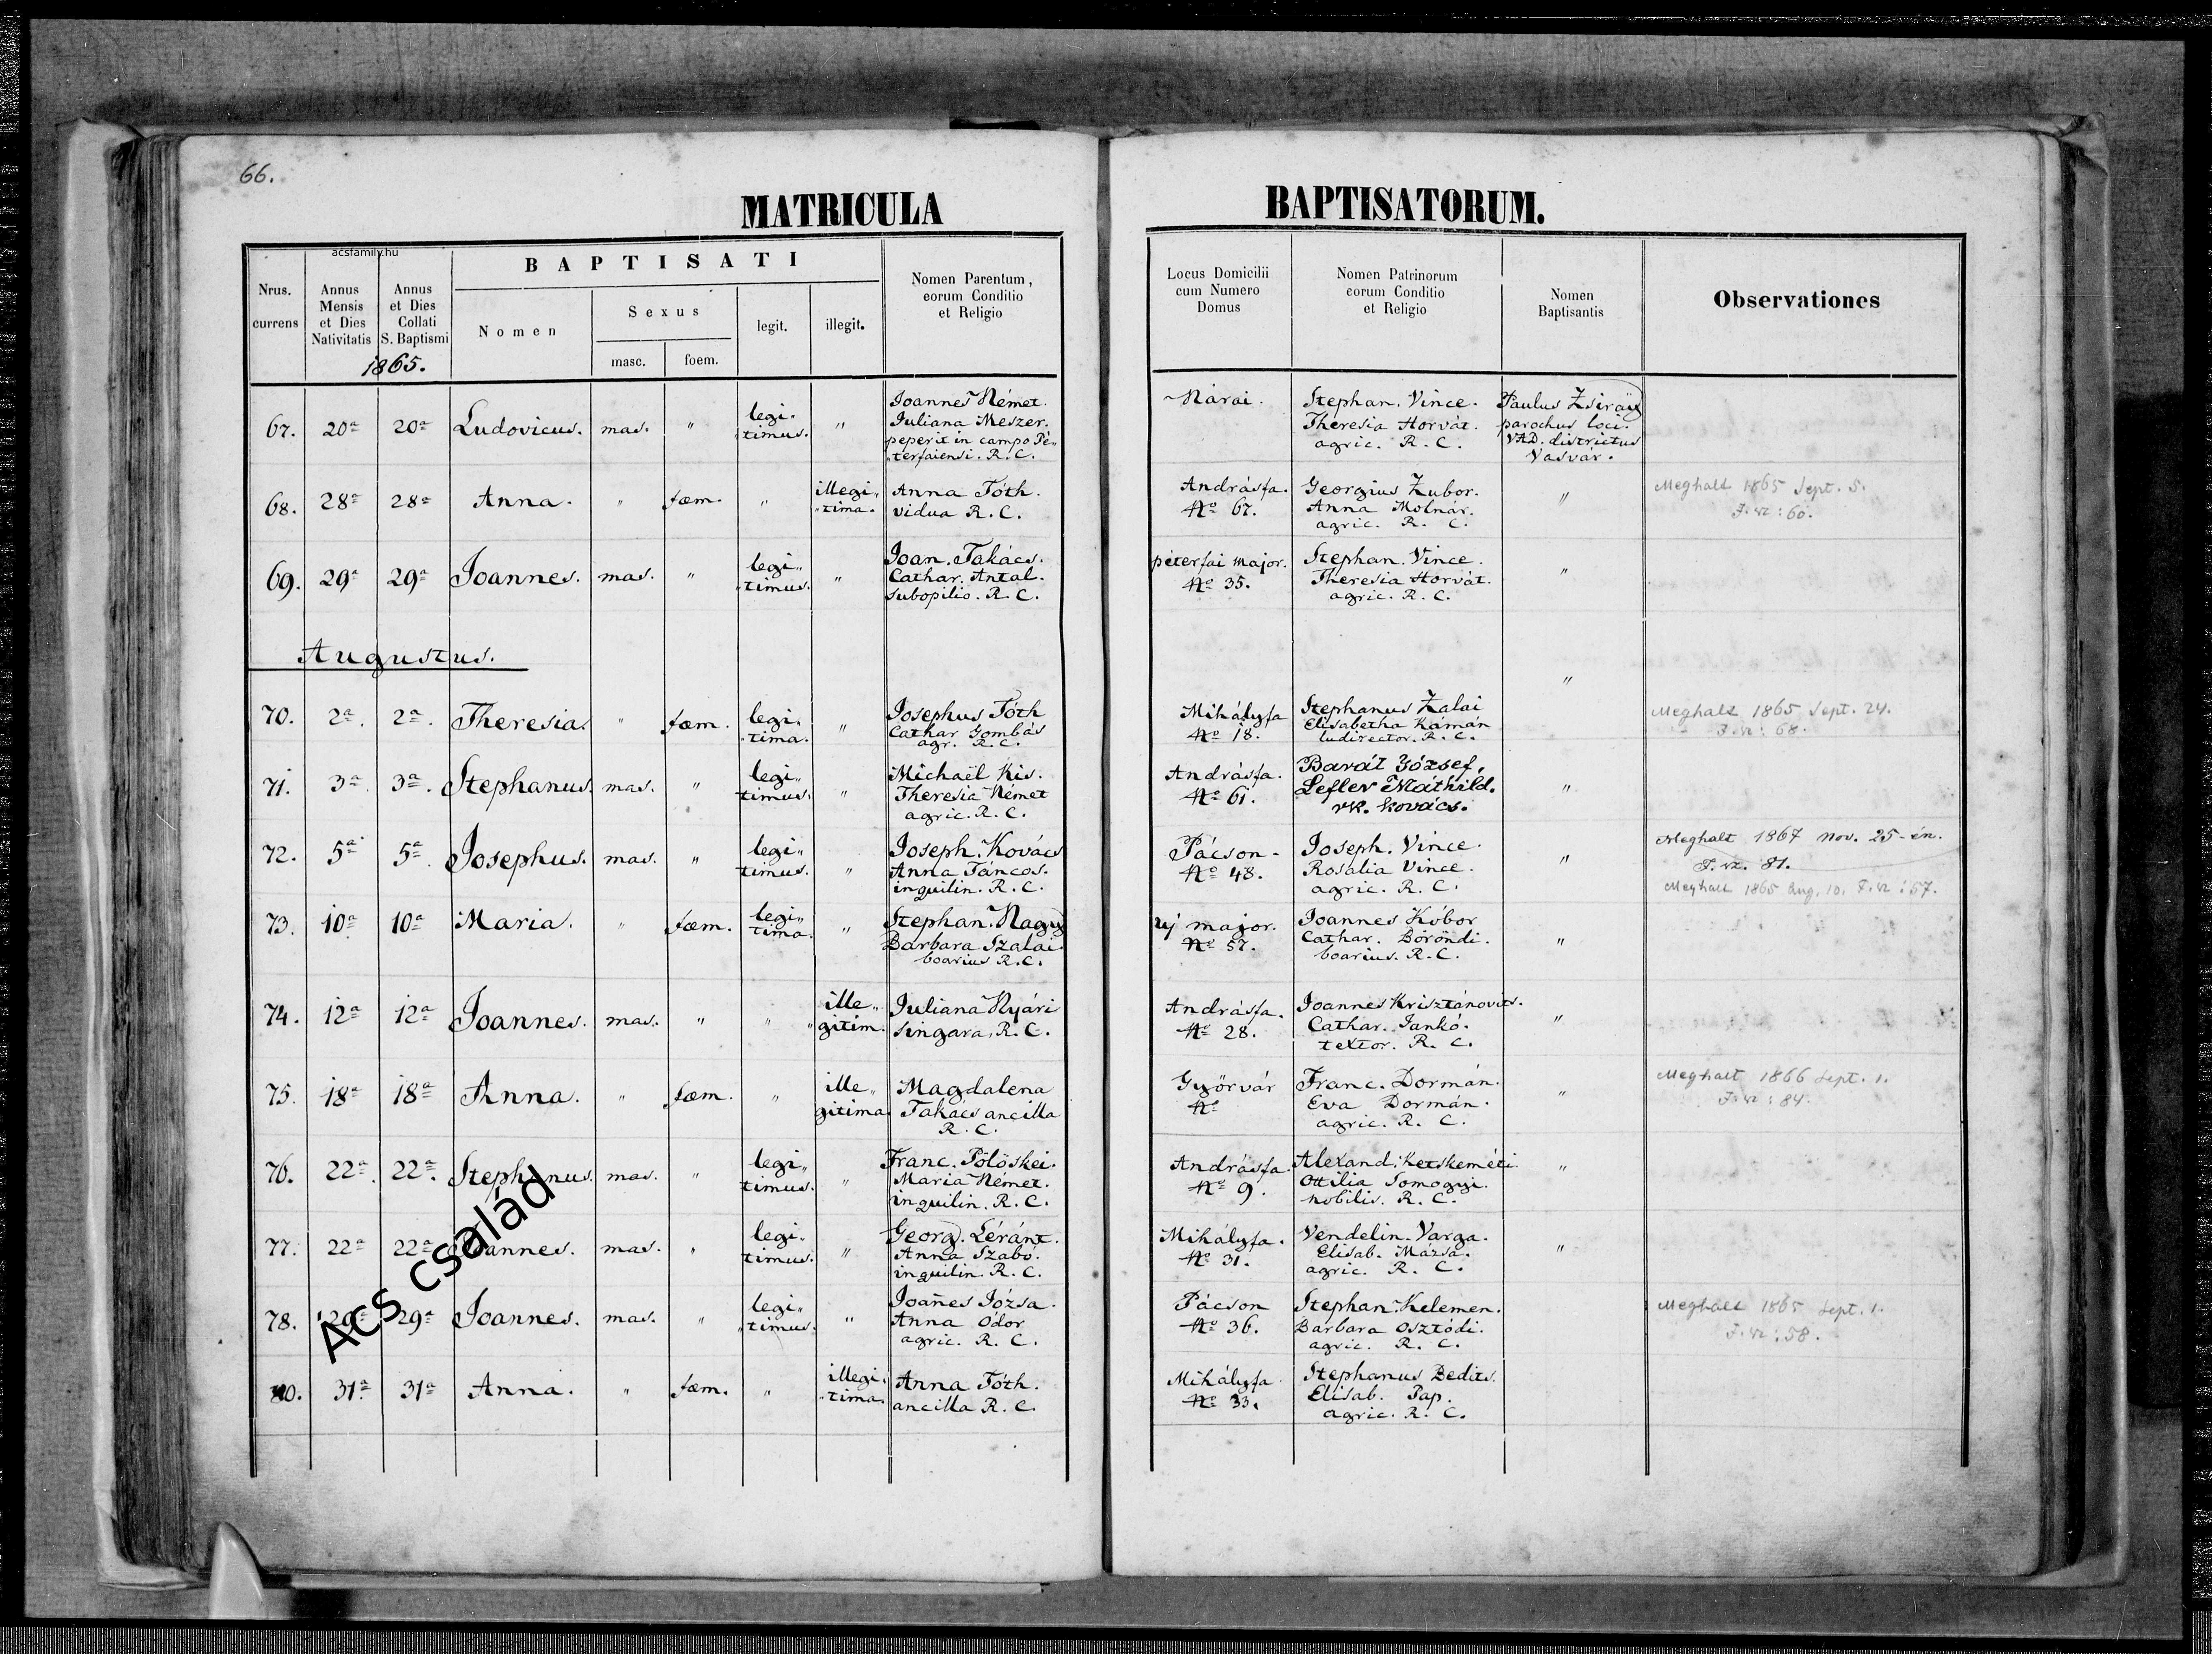 66.
MATRICULA
BAPTISATORUM.
acsfamily.hu
BAPTISATI
Nrus.
currens
Annus
Mensis
et Dies
Nativitatis
Annus
et Dies
Collati
S. Baptismi
1865.
Nomen
Sexus
masc.
foem.
legit.
illegit.
Nomen Parentum,
eorum Conditio
et Religio
Locus Domicilii
cum Numero
Domus
Nomen Patrinorum
eorum Conditio
et Religio
Nomen
Baptisantis
Observationes
67. 20a 20a Ludovicus. mas. "
legi-
timus. "
Joannes Német.
Juliana Meszer.
peperit in campo Pé-
terfaiensi. R. C.
Nárai.
Stephan. Vince.
Theresia Horvát.
agric. R. C.
Paulus Zsiray
parochus loci.
VAD. districtus
Vasvár.
68. 28a 28a Anna. " fœm. "
illegi-
tima.
Anna Tóth.
vidua R. C.
Andrásfa.
No 67.
Georgius Zubor.
Anna Molnár.
agric. R. C.
"
Meghalt 1865 Sept. 5.
F. sz: 60.
69. 29a 29a Joannes. mas. "
legi-
timus. "
Joan. Takács.
Cathar. Antal.
subopilio. R. C.
péterfai major.
No 35.
Stephan. Vince.
Theresia Horvát.
agric. R. C.
"
Augustus.
"
70. 2a. 2a. Theresia. " fœm.
legi-
tima. "
Josephus Tóth
Cathar Gombás
agr. R. C.
Mihályfa
No 18.
Stephanus Zalai
Elisabetha Kámán
ludirector. R. C.
Meghalt 1865 Sept. 24.
F. sz: 68.
71. 3a. 3a. Stephanus. mas. "
legi-
timus. "
Michaël Kis.
Theresia Német
agric. R. C.
Andrásfa.
No 61.
Barát József,
Lefler Máthild.
rk. kovács.
"
72. 5a 5a. Josephus. mas. "
legi-
timus. "
Joseph. Kovács
Anna Táncos.
inquilin. R. C.
Pácson-
No 48.
Joseph. Vince.
Rosalia Vince.
agric. R. C.
"
Meghalt 1867 Nov. 25-én.
F. sz. 81.
Meghalt 1865 Aug. 10. F. sz: 57.
73. 10a 10a Maria. " fœm.
legi-
tima. "
Stephan. Nagy
Barbara Szalai.
boarius R. C.
uj major.
No 57.
Joannes Kóbor
Cathar. Böröndi.
boarius. R. C.
"
74. 12a 12a Joannes. mas. " "
ille-
gitim.
Juliana Nyári
singara, R. C.
Andrásfa.
No 28.
Joannes Krisztánovits.
Cathar. Jankó.
textor. R. C.
"
75. 18a 18a Anna. " fœm. "
ille-
gitima
Magdalena
Takács ancilla
R. C.
Györvár
No
Franc. Dormán.
Eva Dormán.
agric. R. C.
"
Meghalt 1866 Sept. 1.
F. sz: 84.
76. 22a. 22a. Stephanus. mas. "
legi-
timus. "
Franc. Pölöskei.
Maria Német.
inquilin. R. C.
Andrásfa.
No 9.
Alexand. Ketskeméti.
Ottilia Somogyi.
nobilis. R. C.
"
77. 22a 22a Joannes. mas. "
legi-
timus. "
Georg. Léránt.
Anna Szabó.
inquilin. R. C.
Mihályfa.
No 31.
Vendelin. Varga.
Elisab. Mázsa.
agric. R. C.
"
78. 29a 29a Joannes. mas. "
legi-
timus. "
Joañes Józsa.
Anna Ódor
agric. R. C.
Pácson
No 36.
Stephan. Kelemen.
Barbara Osztódi.
agric. R. C.
Meghalt 1865 Sept. 1.
F. sz: 58.
31a 31a Anna. " fœm. "
illegi-
tima.
Anna Tóth.
ancilla R. C.
Mihályfa.
No 33.
Stephanus Bedits.
Elisab. Pap.
agric. R. C.
Acs család